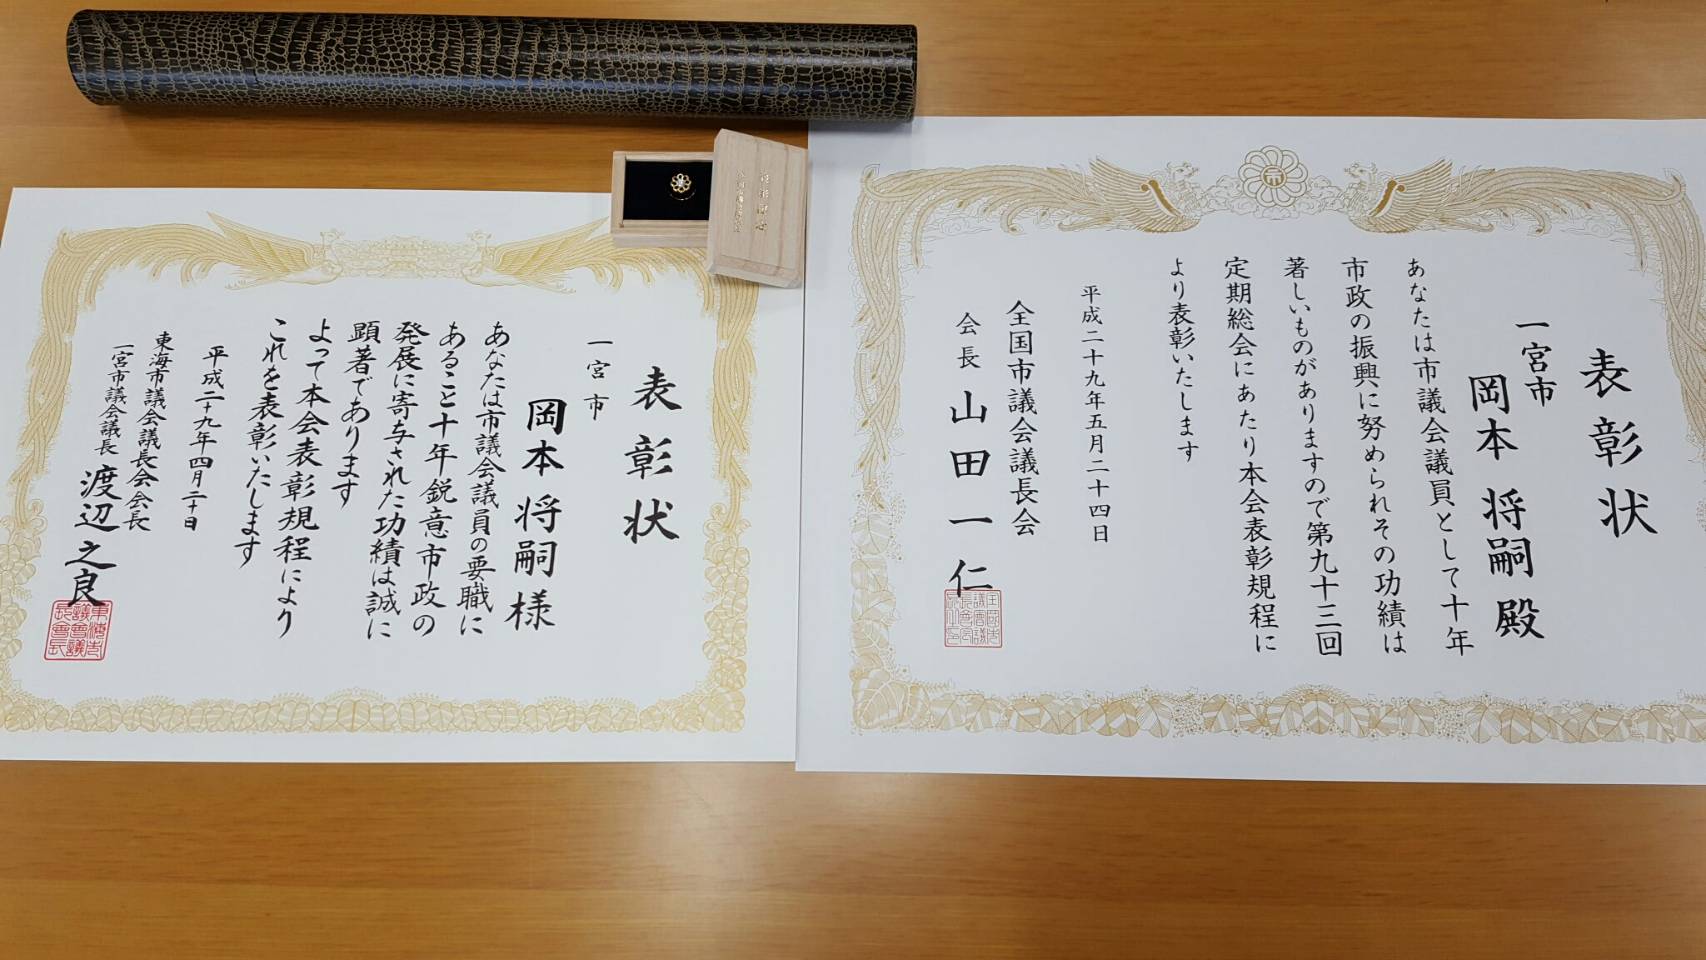 表彰状
一宮市
岡本将嗣殿
あなたは市議会議員として十年
市政の振興に努められその功績は
著しいものがありますので第九十三回
定期総会にあたり本会表彰規程に
より表彰いたします
平成二十九年五月二十四日
全国市議会議長会
会長 山田一仁
表彰状
一宮市
岡本将嗣様
あなたは市議会議員の要職に
あること十年鋭意市政の
発展に寄与された功績は誠に
顕著であります
よって本会表彰規程により
これを表彰いたします
平成二十九年四月二十日
東海市議会議長会会長
一宮市議会議長 渡辺之良